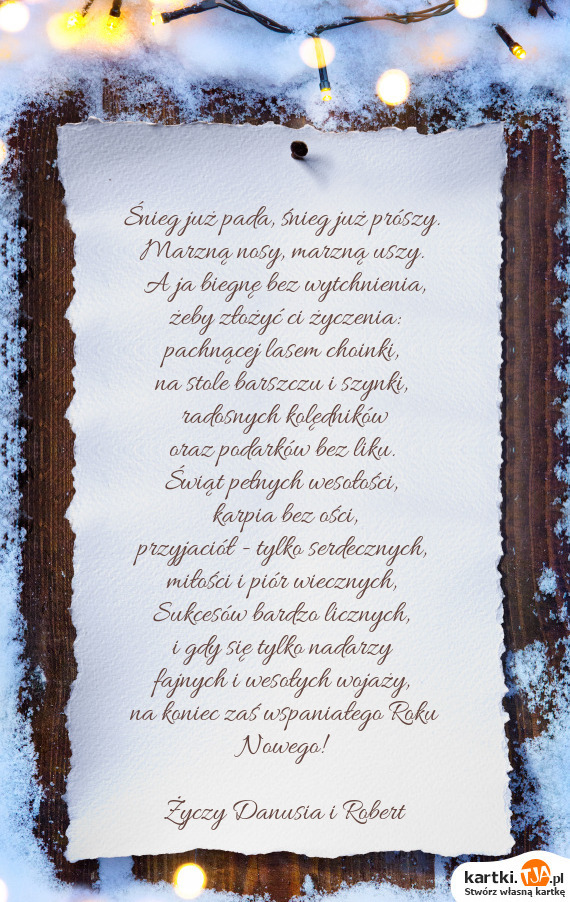 Śnieg już pada, śnieg już prószy.
Marzną nosy, marzną uszy.
A ja biegnę bez wytchnienia,
żeby złożyć ci życzenia:
pachnącej lasem choinki,
na stole barszczu i szynki,
radosnych kolędników
oraz podarków bez liku.
Świąt pełnych wesołości,
karpia bez ości,
przyjaciół - tylko serdecznych,
miłości i piór wiecznych,
Sukcesów bardzo licznych,
i gdy się tylko nadarzy
fajnych i wesołych wojaży,
na koniec zaś wspaniałego Roku
Nowego!
Życzy Danusia i Robert
kartki.TJA.pl
Stwórz własną kartkę